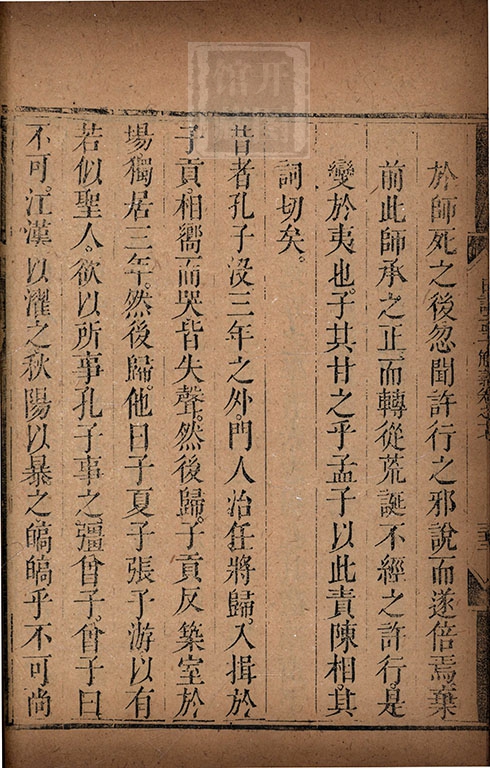 於師死之後忽聞許行之邪說而遂倍焉棄
前此師承之正而轉從荒誕不經之許行是
變於夷也子其甘之乎孟子以此責陳相其
詞切矣。
昔者孔子沒三年之外門人治任將歸入揖於
子貢相嚮而哭皆失聲然後歸子貢反築室於
場獨居三年然後歸他日子夏子張子游以有
若似聖人欲以所事孔子事之彊曾子曾子曰
不可江漢以濯之秋陽以暴之皜皜乎不可尚